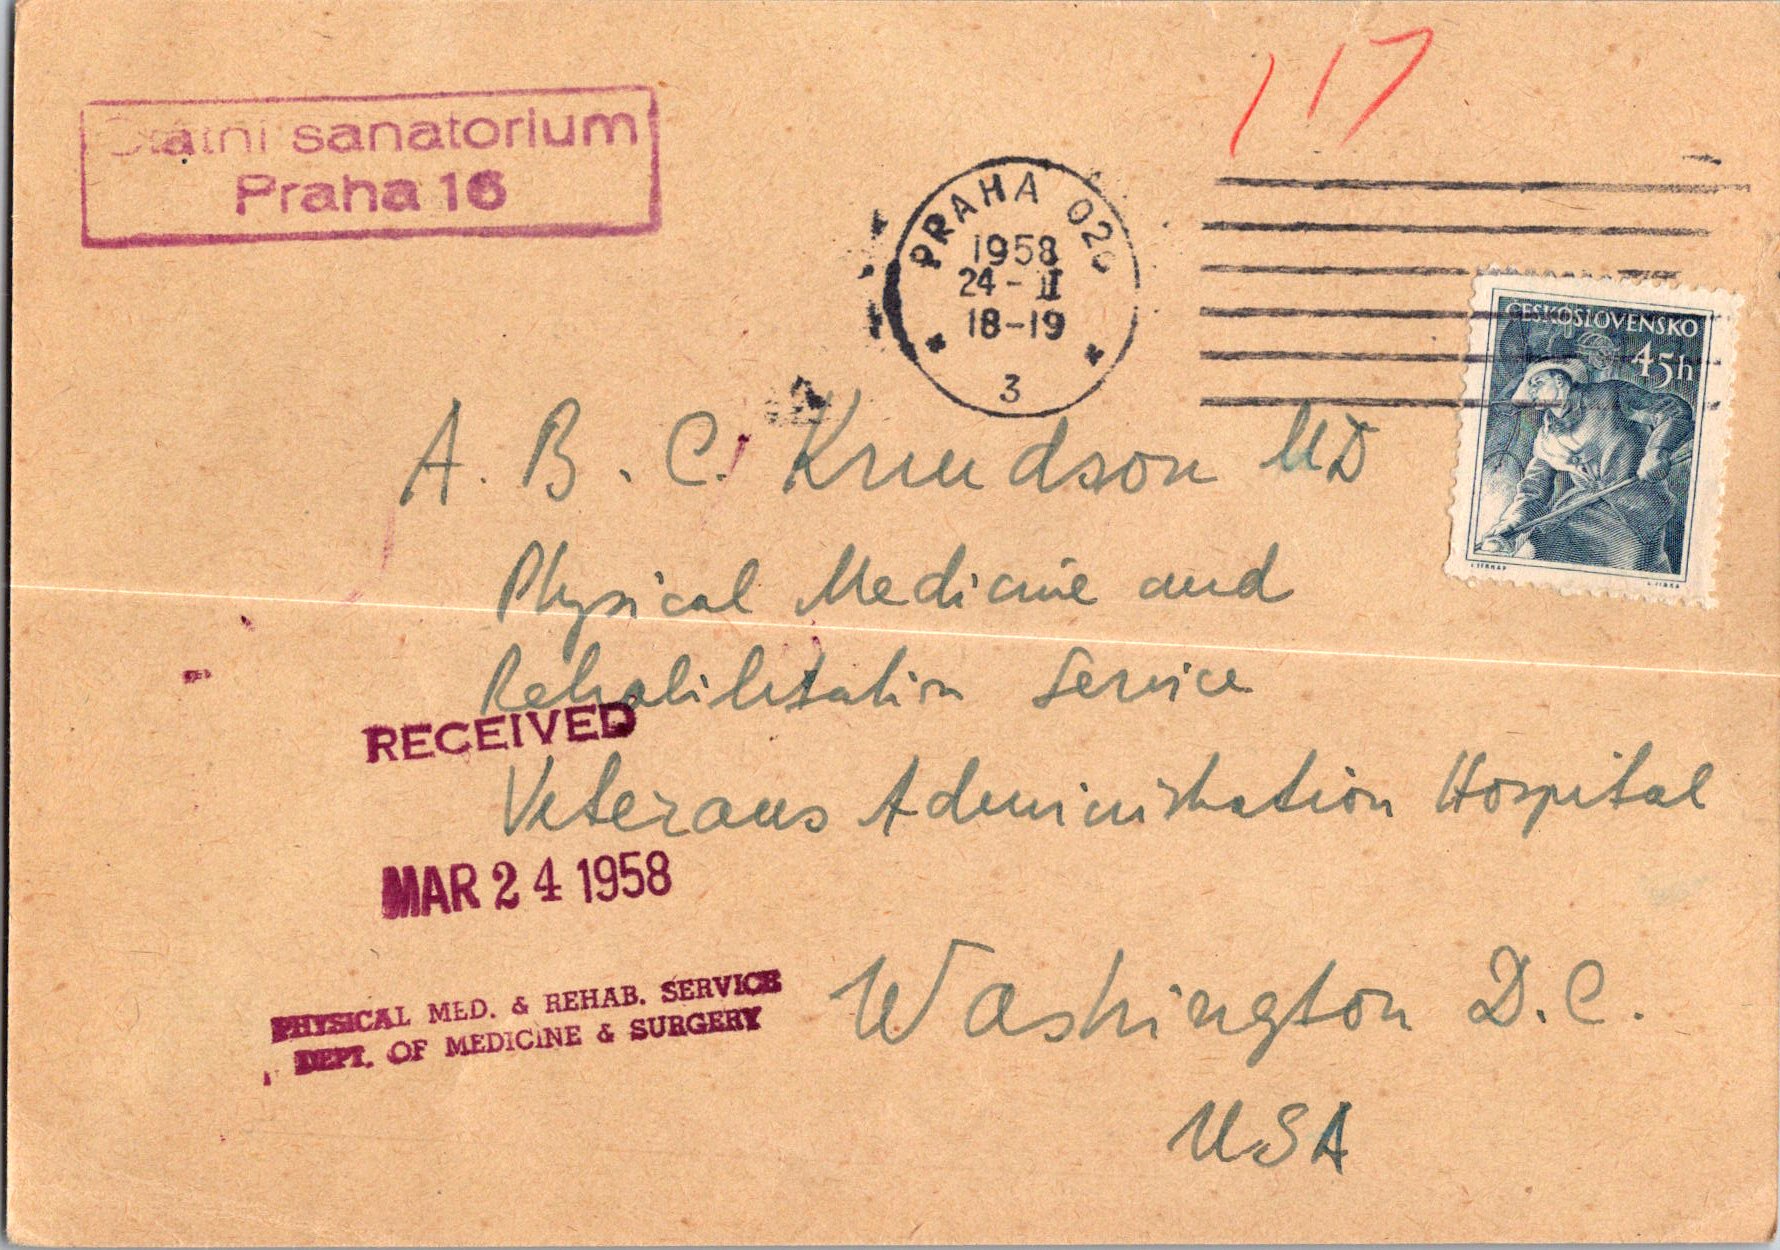 Statni sanatorium
Praha 16
117
PRAHA 02
1958
24-II
18-19
3
ČESKOSLOVENSKO
45h
A. B. C. Knudson MD
Physical Medicine and
Rehabilitation Service
RECEIVED
Veterans Administration Hospital
MAR 24 1958
PHYSICAL MED. & REHAB. SERVICE
DEPT. OF MEDICINE & SURGERY
Washington D.C.
USA